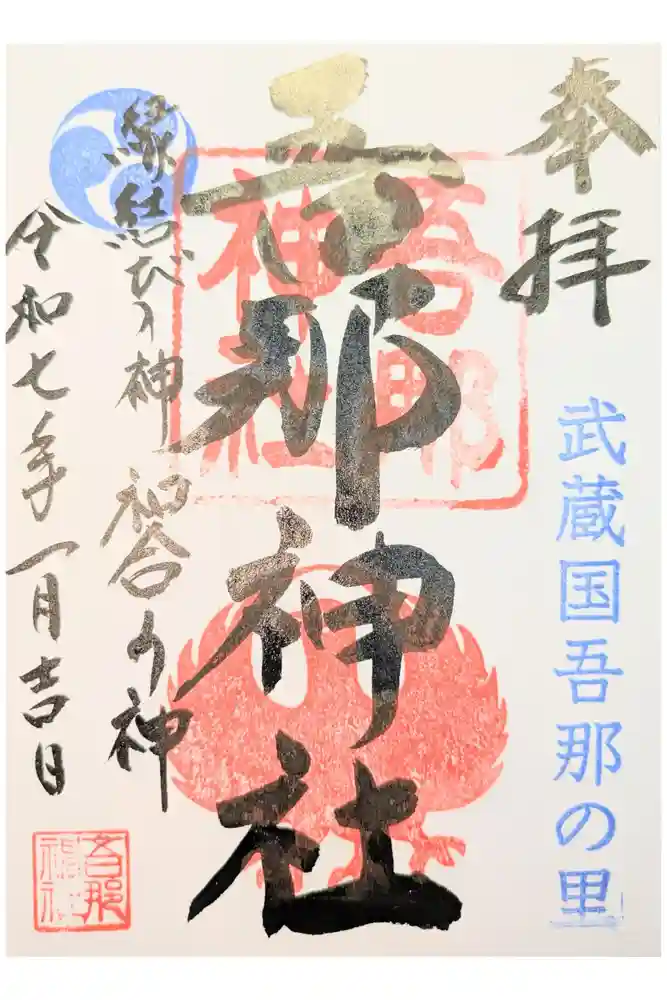 奉拝
武蔵国吾那の里
吾那神社
吾那神社
縁結びの神 和合の神
令和七年一月吉日